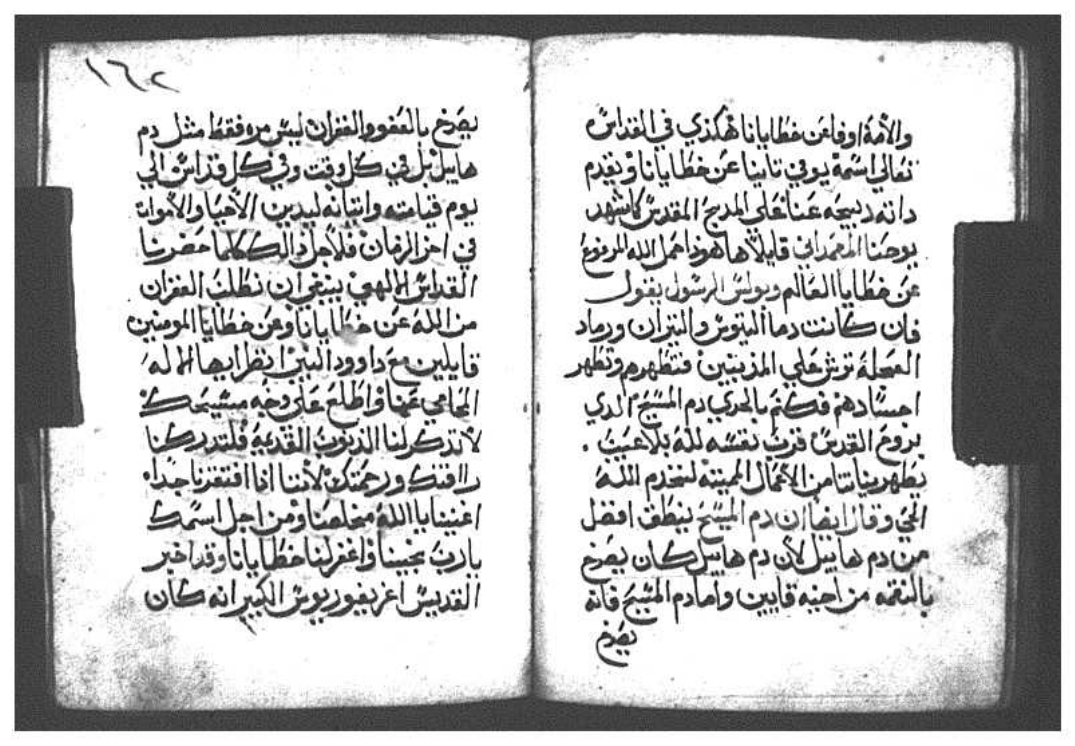 والامة اوفا عن خطايانا هكذي في القداس
تعالي اسمه يوفي تابتا عن خطايانا ويقدم
داته دبيحه عنا علي المدبح المقدس كما شهد
يوحنا المعمداني قايلا ها هودا حمل الله المرفوع
عن خطايا العالم وبولس الرسول يقول
فان كانت دما التيوس والتيران ورماد
العجلة ترش علي المذنبين فتطهرهم وتطهر
اجسادهم فكم بالحري دم المسيح الدي
بروح القدس قرب نفسه لله بلا عيب .
يطهر نياتنا من الاعمال المميته لنخدم الله
الحي وقال ايضا ان دم المسيح ينطق افضل
من دم هابيل لان دم هابيل كان يصرخ
بالنقمه من اخيه قايين واما دم المسيح فانه
يصرخ
١٦٢
يصرخ بالعفو والغفران ليس مره فقط مثل دم
هابيل بل في كل وقت وفي كل قداس الي
يوم قيامته واتيانه ليدين الاحيا والاموات
في اخر الزمان فلاجل دالك كلما حضرنا
القداس الالهي ينبغي ان نطلب الغفران
من الله عن خطايانا وعن خطايا المومنين
قايلين مع داوود النبي انظر ايها الاله
المحامي عنها واطلع علي وجه مسيحك
لا تدكر لنا الذنوب القديمة فلتدركنا
رافتك ورحمتك لاننا اذا افتقرنا جدا
اعيننا يا الله مخلصنا ومن اجل اسمك
يا رب نجينا واغفر لنا خطايانا وقد اخبر
القديس اغريغوريوس الكبير انه كان